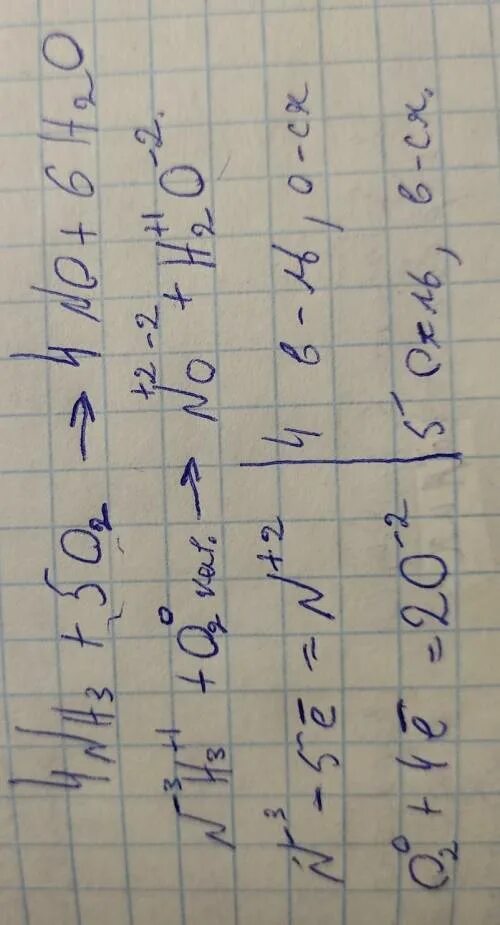 4NH₃ + 5O₂ → 4NO + 6H₂O
N⁻³H₃⁺¹ + O₂⁰ кат. → N⁺²O⁻² + H₂⁺¹O⁻².
N⁻³ - 5ē = N⁺² | 4 в-ль, о-ся
O₂⁰ + 4ē = 2O⁻² | 5 окль, в-ся.